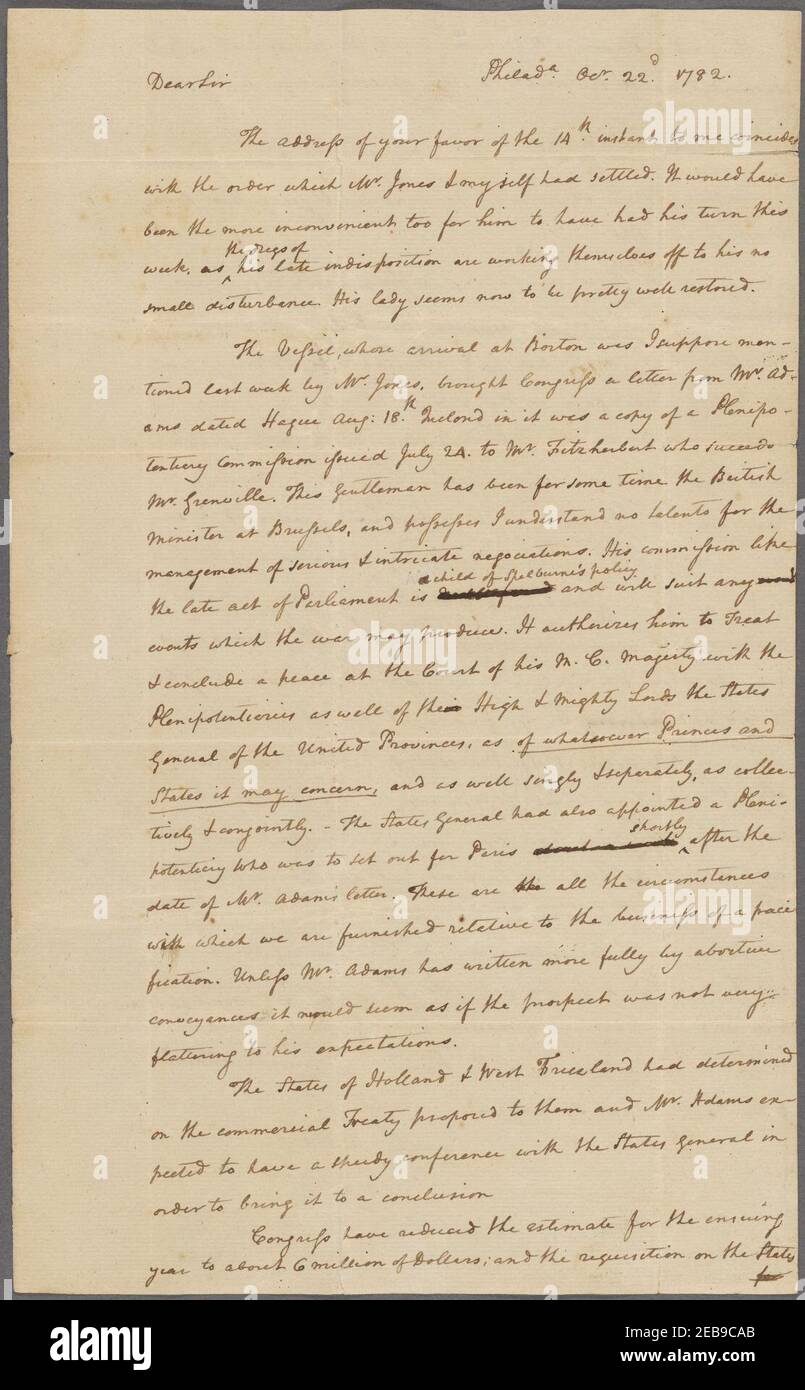 Dear Sir
Philada. Ocr. 22d. 1782.
The address of your favor of the 14th. instant to me coincides
with the order which Mr. Jones & myself had settled. It would have
been the more inconvenient too for him to have had his turn this
the dregs of
week, as ^ his late indisposition are working themselves off to his no
small disturbance. His lady seems now to be pretty well restored.
The Vessel, whose arrival at Boston was I suppose men-
tioned last week by Mr. Jones, brought Congress a letter from Mr. Ad-
ams dated Hague Aug: 18th. Inclosd in it was a copy of a Plenipo-
tentiery Commission issued July 24. to Mr. Fitzherbert who succeeds
Mr. Grenville. This Gentleman has been for some time the British
Minister at Brussels, and possesses I understand no talents for the
management of serious & intricate negociations. His commission like
a child of Shelburne's policy
the late act of Parliament is and will suit any
events which the war may produce. It authorizes him to Treat
& conclude a peace at the Court of his M. C. Majesty with the
Plenipotentiaries as well of their High & Mighty Lords the States
General of the United Provinces, as of whatsoever Princes and
States it may concern, and as well singly & seperately, as collec-
tively & conjointly. - The States General had also appointed a Pleni-
shortly
potentiery who was to set out for Paris ^ after the
date of Mr. Adams letter. These are the all the circumstances
with which we are furnished relative to the business of a paci
fication. Unless Mr. Adams has written more fully by abortive
conveyances it would seem as if the prospect was not very
flattering to his expectations.
The States of Holland & West Friezland had determined
on the commercial Treaty proposed to them and Mr. Adams ex-
pected to have a speedy conference with the States General in
order to bring it to a conclusion
Congress have reduced the estimate for the ensuing
year to about 6 million of Dollars; and the requisition on the States
for
alamy
alamy
a
Image ID: 2EB9CAB
www.alamy.com